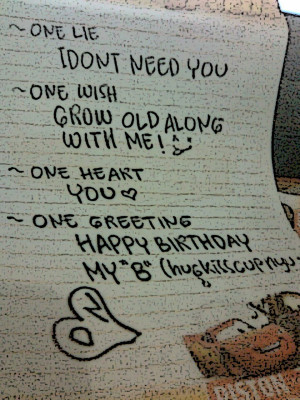 ~ ONE LIE
IDONT NEED YOU
~ ONE WISH
GROW OLD ALONG
WITH ME!
~ ONE HEART
YOU ♡
~ ONE GREETING
HAPPY BIRTHDAY
MY "B"
PISTON